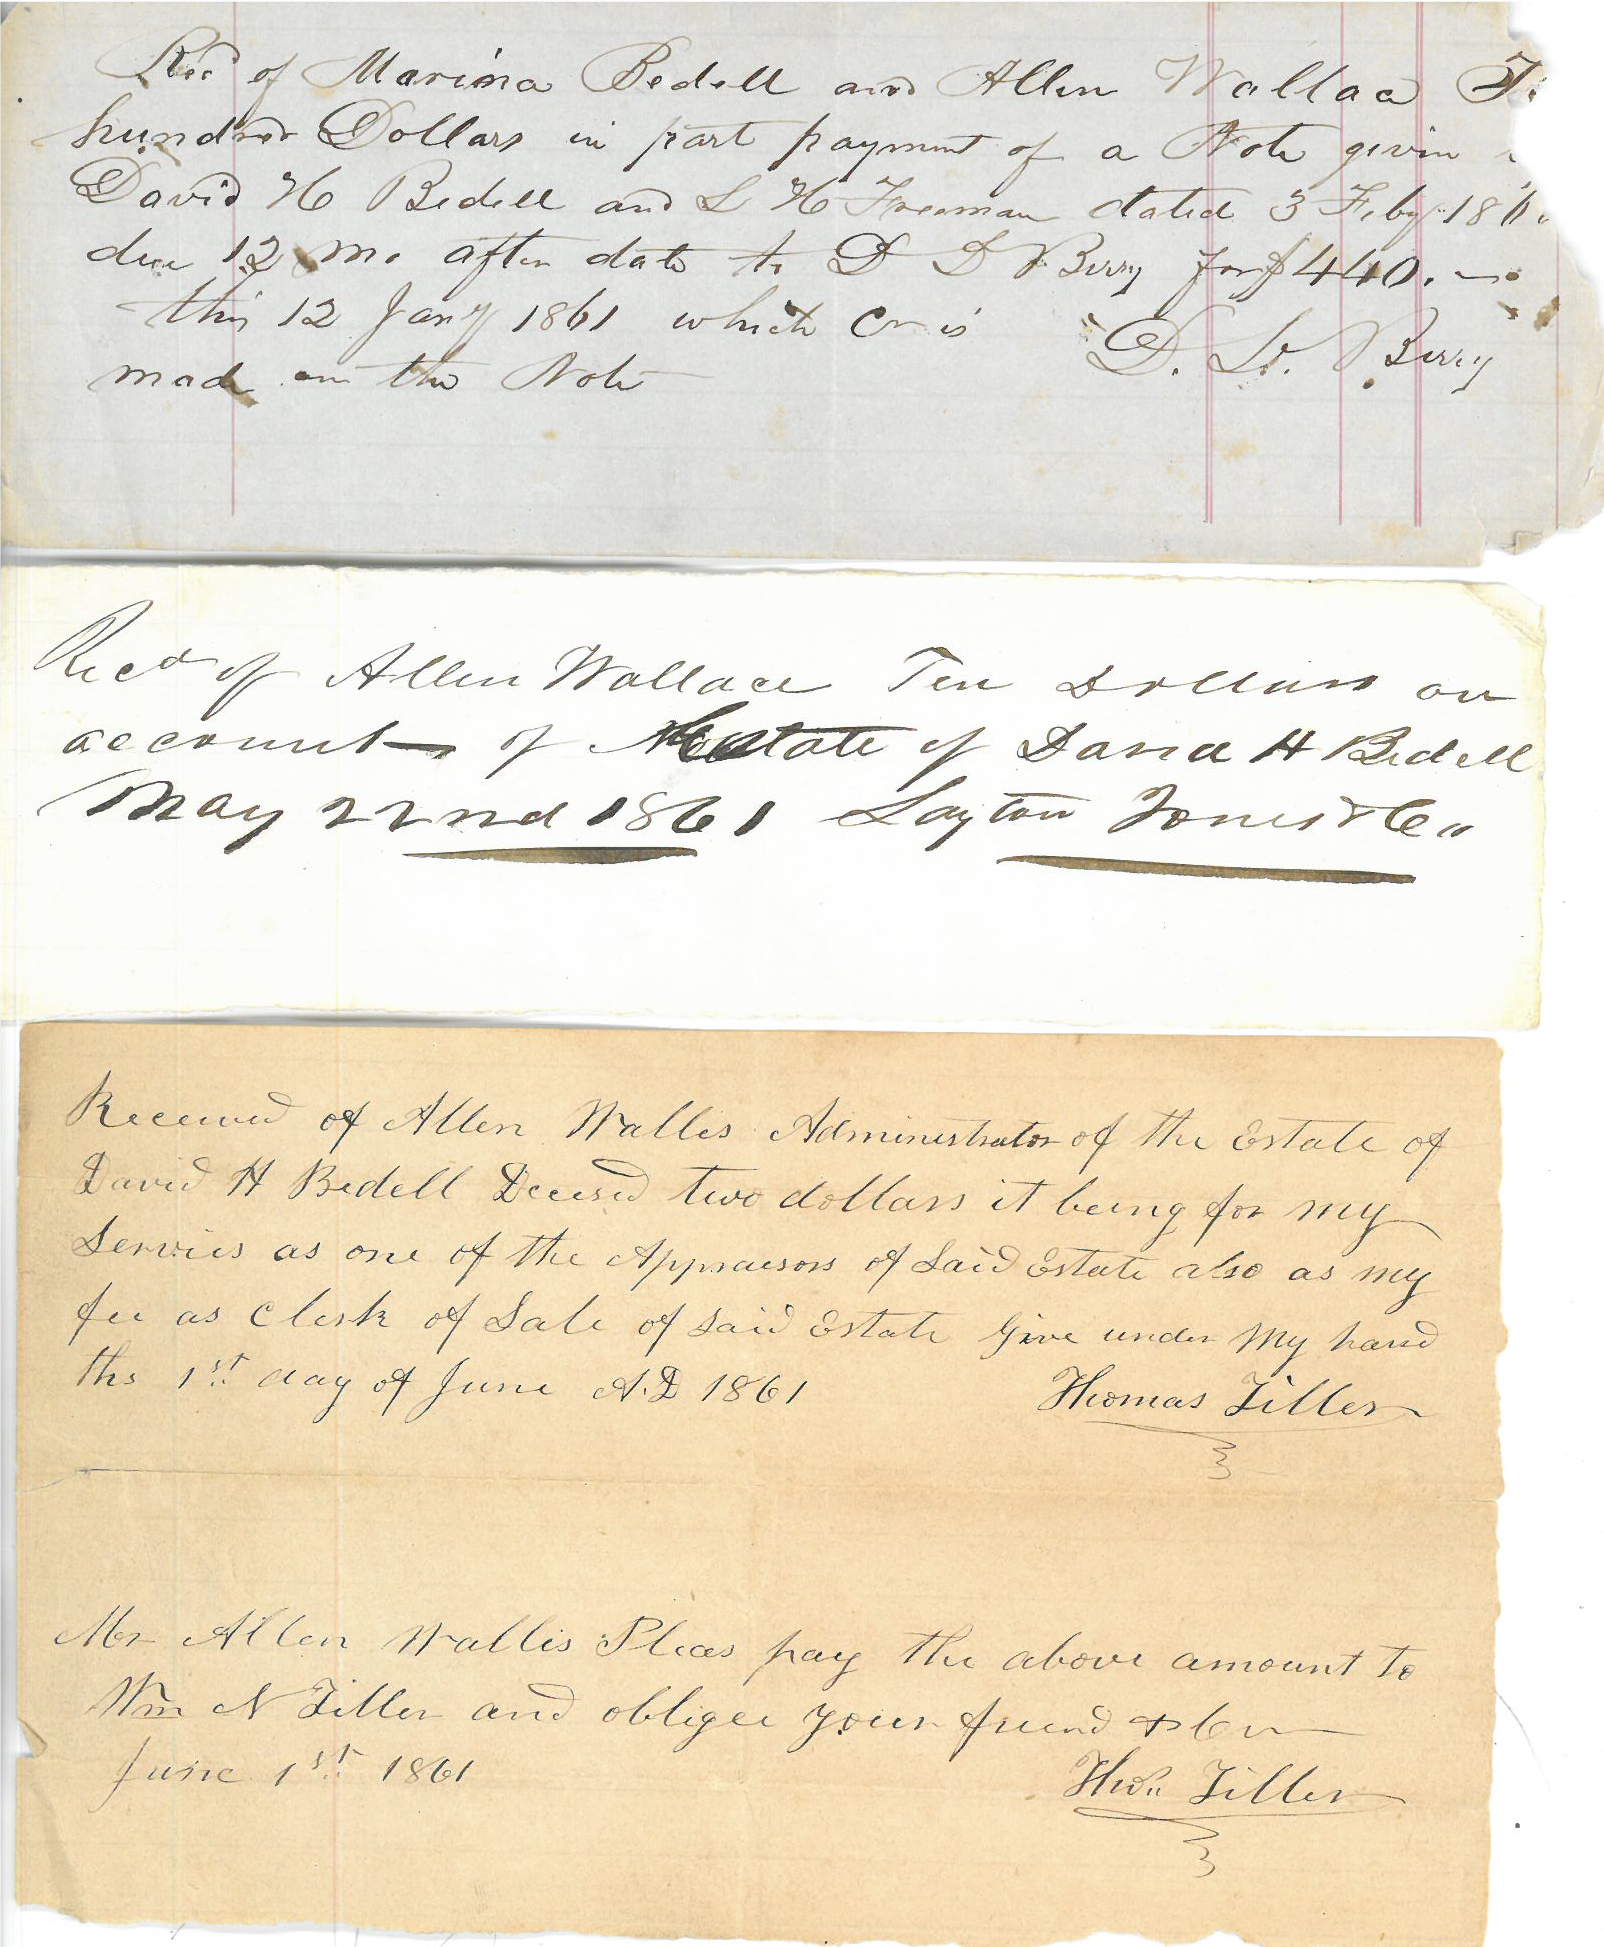 Rec'd of Marina Bedell and Allen Wallace
hundred Dollars in part payment of a Note given
David H Bedell and L H Freeman dated 3 Feby 18
due 12 mo after date to D D Berry for $440.
this 12 Jany 1861 which Cr is
D. D. Berry
made on the Note
Recd of Allen Wallace Ten Dollars on
account of Estate of David H Bedell
May 22nd 1861 Layton Jones & Co
Received of Allen Wallis Administrator of the Estate of
David H Bedell Decesed two dollars it being for my
Servis as one of the Appraesors of Said Estate also as my
fee as Clerk of Sale of Said Estate Give under My hand
ths 1st day of June A.D 1861 Thomas Tiller
Mr Allen Wallis Pleas pay the above amount to
Wm N Tiller and obligee your friend &
June 1st 1861 Thos Tiller